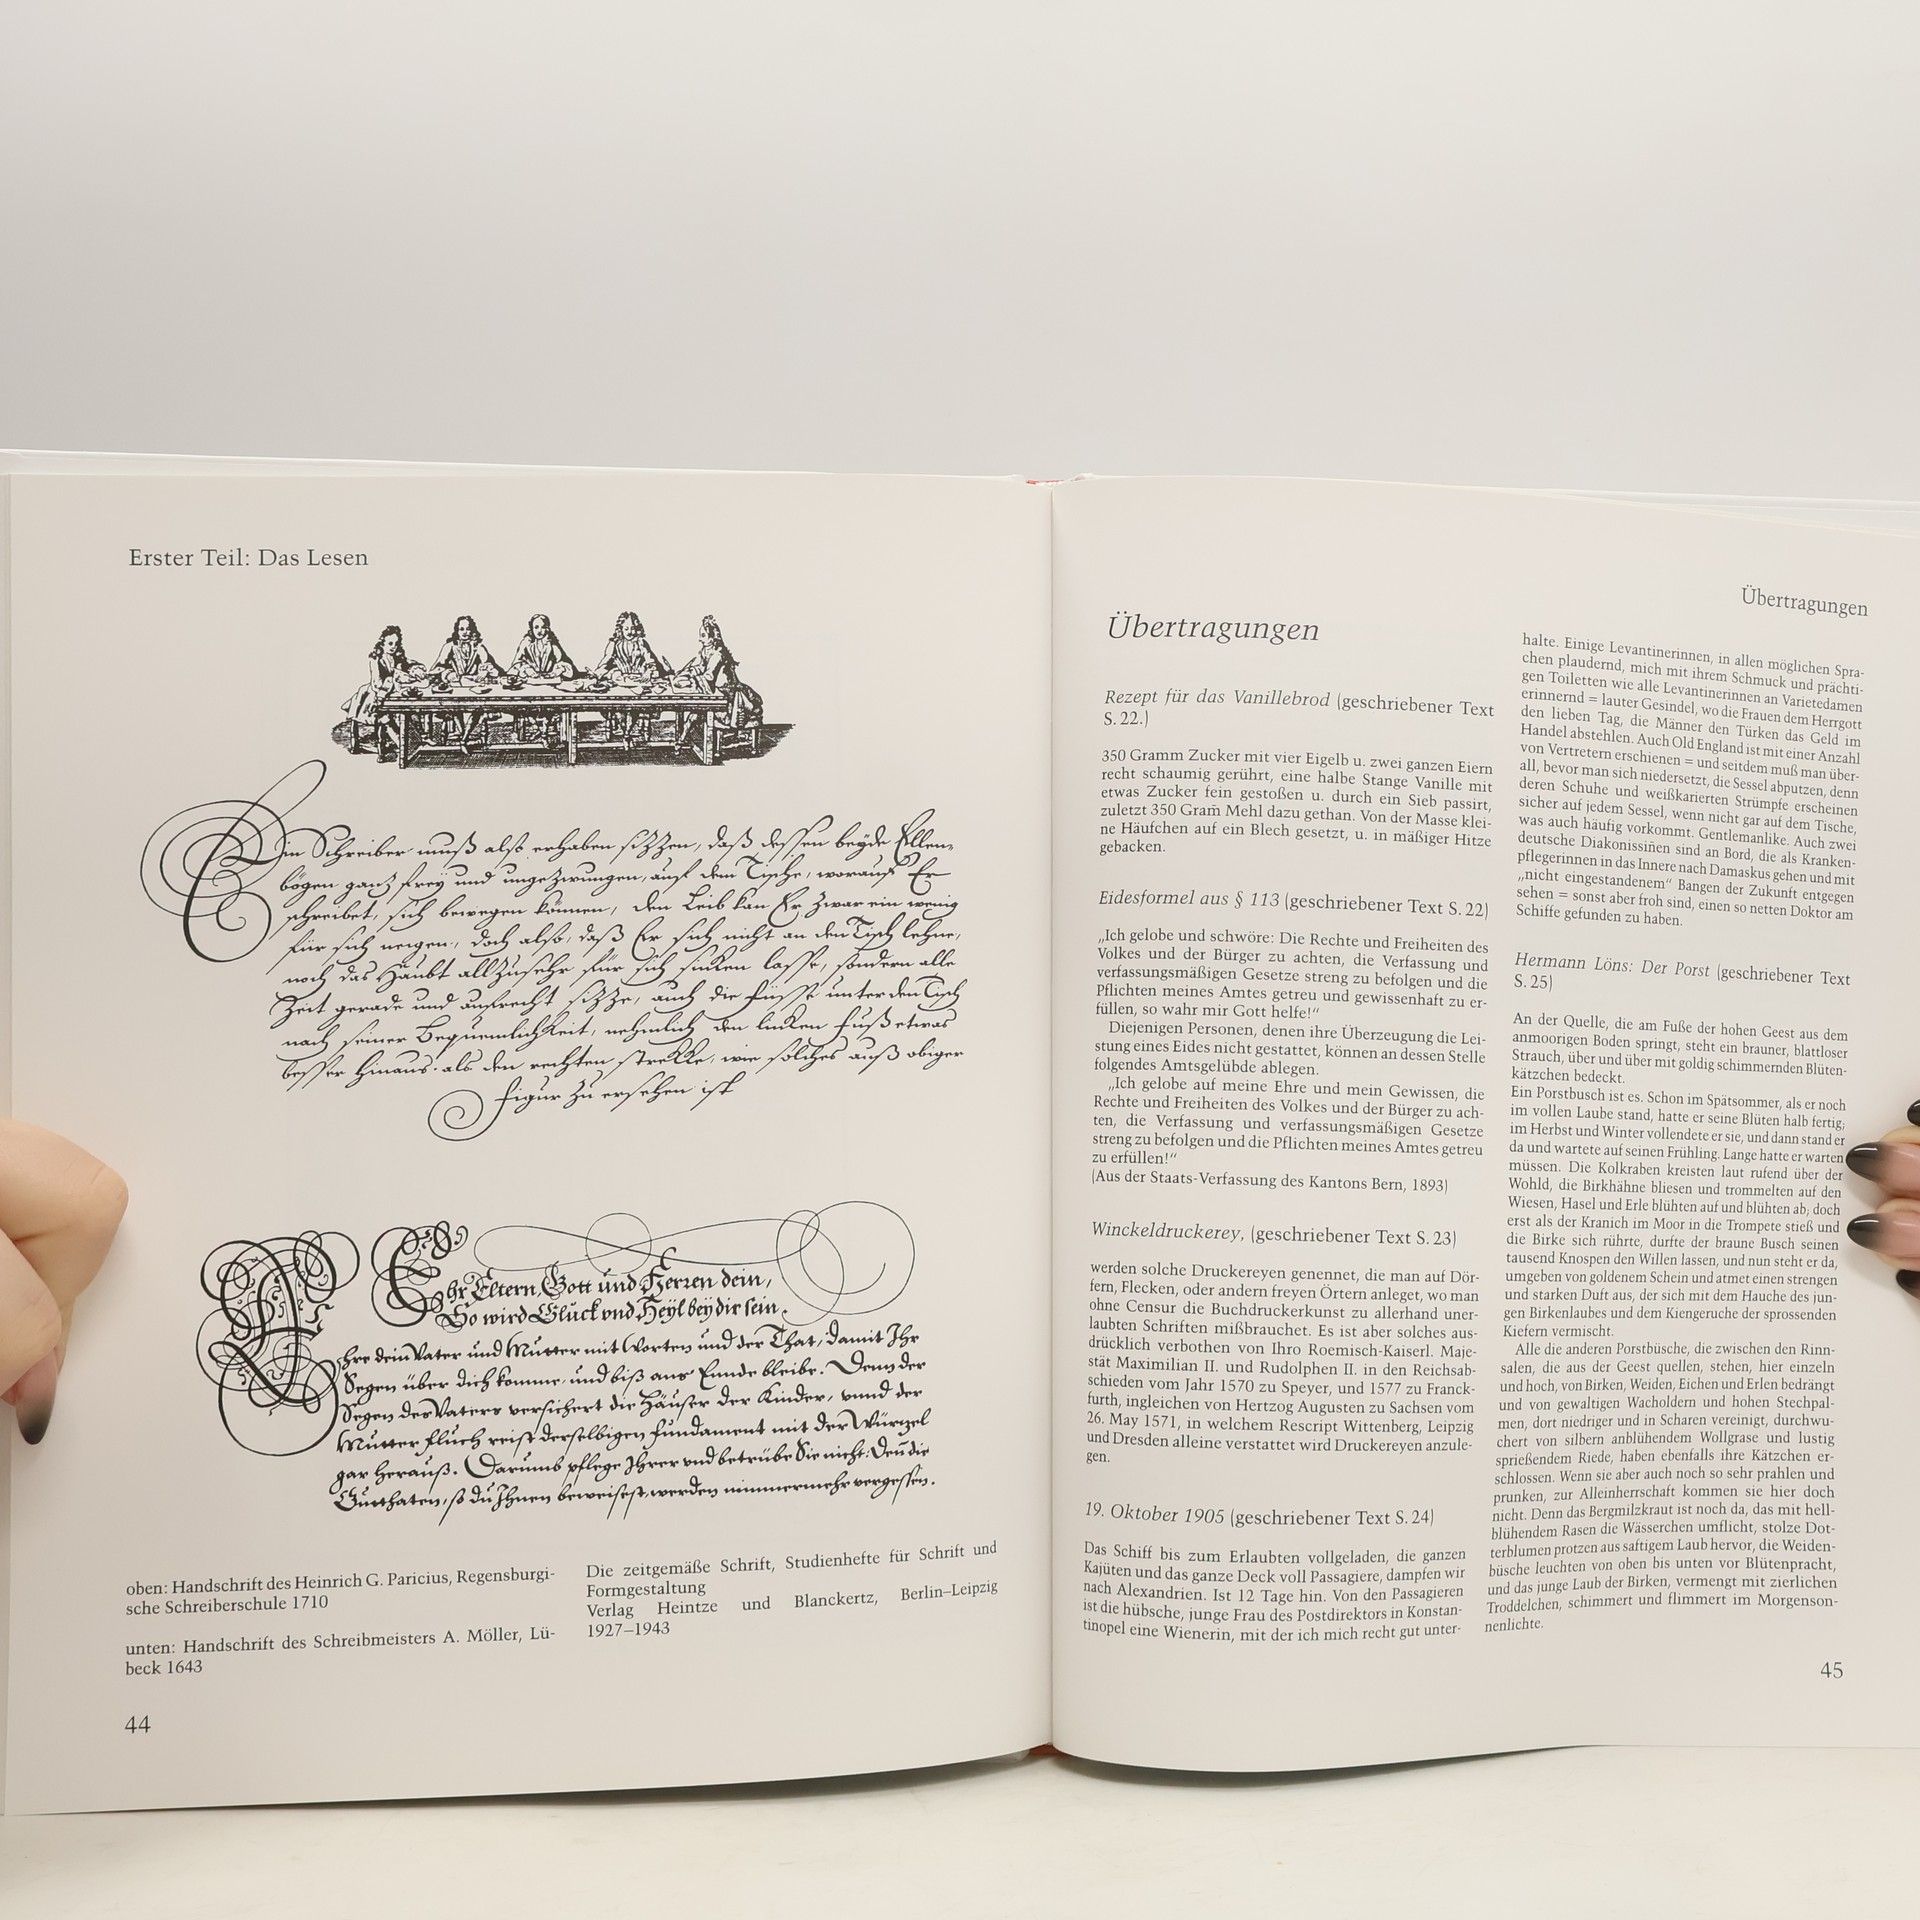 Erster Teil: Das Lesen
Ein Schreiber muß also erhaben sizzen, daß dessen beyde Ellen-
bögen ganz frey und ungezwungen, auf dem Tische, worauf Er
schreibet, sich bewegen können, den Leib kan Er zwar ein wenig
für sich neigen, doch also, daß Er sich nicht an den Tisch lehne,
noch das Haubt allzusehr für sich sinken lasse, sondern alle
Zeit gerade und aufrecht sizze, auch die Füsse unter den Tisch
nach seiner Bequemlichkeit, nehmlich den linken Fuß etwas
besser hinaus, als den rechten strekke, wie solches auß obiger
Figur zu ersehen ist
Ehr Eltern, Gott und Herren dein,
So wird Glück vnd Heyl bey dir sein.
Ehre dein Vater und Mutter mit Worten und der That, damit Ihr
Segen über dich komme, und biß ans Ennde bleibe. Denn der
Segen des Vaters versichert die Häuser der Kinder, vnnd der
Mutter fluch reist derselbigen fundament mit der Würtzel
gar herauß. Darumb pflege Ihrer vnd betrübe Sie nicht: Deñ die
Gutthaten, so du Ihnen beweisest, werden nimmermehr vergessen.
oben: Handschrift des Heinrich G. Paricius, Regensburgi-
sche Schreiberschule 1710
unten: Handschrift des Schreibmeisters A. Möller, Lü-
beck 1643
Die zeitgemäße Schrift, Studienhefte für Schrift und
Formgestaltung
Verlag Heintze und Blanckertz, Berlin–Leipzig
1927–1943
44
Übertragungen
Übertragungen
Rezept für das Vanillebrod (geschriebener Text
S. 22.)
350 Gramm Zucker mit vier Eigelb u. zwei ganzen Eiern
recht schaumig gerührt, eine halbe Stange Vanille mit
etwas Zucker fein gestoßen u. durch ein Sieb passirt,
zuletzt 350 Gram̄ Mehl dazu gethan. Von der Masse klei-
ne Häufchen auf ein Blech gesetzt, u. in mäßiger Hitze
gebacken.
Eidesformel aus § 113 (geschriebener Text S. 22)
„Ich gelobe und schwöre: Die Rechte und Freiheiten des
Volkes und der Bürger zu achten, die Verfassung und
verfassungsmäßigen Gesetze streng zu befolgen und die
Pflichten meines Amtes getreu und gewissenhaft zu er-
füllen, so wahr mir Gott helfe!“
Diejenigen Personen, denen ihre Überzeugung die Lei-
stung eines Eides nicht gestattet, können an dessen Stelle
folgendes Amtsgelübde ablegen.
„Ich gelobe auf meine Ehre und mein Gewissen, die
Rechte und Freiheiten des Volkes und der Bürger zu ach-
ten, die Verfassung und verfassungsmäßigen Gesetze
streng zu befolgen und die Pflichten meines Amtes getreu
zu erfüllen!“
(Aus der Staats-Verfassung des Kantons Bern, 1893)
Winckeldruckerey, (geschriebener Text S. 23)
werden solche Druckereyen genennet, die man auf Dör-
fern, Flecken, oder andern freyen Örtern anleget, wo man
ohne Censur die Buchdruckerkunst zu allerhand uner-
laubten Schriften mißbrauchet. Es ist aber solches aus-
drücklich verbothen von Ihro Roemisch-Kaiserl. Maje-
stät Maximilian II. und Rudolphen II. in den Reichsab-
schieden vom Jahr 1570 zu Speyer, und 1577 zu Franck-
furth, ingleichen von Hertzog Augusten zu Sachsen vom
26. May 1571, in welchem Rescript Wittenberg, Leipzig
und Dresden alleine verstattet wird Druckereyen anzule-
gen.
19. Oktober 1905 (geschriebener Text S. 24)
Das Schiff bis zum Erlaubten vollgeladen, die ganzen
Kajüten und das ganze Deck voll Passagiere, dampfen wir
nach Alexandrien. Ist 12 Tage hin. Von den Passagieren
ist die hübsche, junge Frau des Postdirektors in Konstan-
tinopel eine Wienerin, mit der ich mich recht gut unter-
halte. Einige Levantinerinnen, in allen möglichen Spra-
chen plaudernd, mich mit ihrem Schmuck und prächti-
gen Toiletten wie alle Levantinerinnen an Varietedamen
erinnernd = lauter Gesindel, wo die Frauen dem Herrgott
den lieben Tag, die Männer den Türken das Geld im
Handel abstehlen. Auch Old England ist mit einer Anzahl
von Vertretern erschienen = und seitdem muß man über-
all, bevor man sich niedersetzt, die Sessel abputzen, denn
deren Schuhe und weißkarierten Strümpfe erscheinen
sicher auf jedem Sessel, wenn nicht gar auf dem Tische,
was auch häufig vorkommt. Gentlemanlike. Auch zwei
deutsche Diakonissiñen sind an Bord, die als Kranken-
pflegerinnen in das Innere nach Damaskus gehen und mit
„nicht eingestandenem“ Bangen der Zukunft entgegen
sehen = sonst aber froh sind, einen so netten Doktor am
Schiffe gefunden zu haben.
Hermann Löns: Der Porst (geschriebener Text
S. 25)
An der Quelle, die am Fuße der hohen Geest aus dem
anmoorigen Boden springt, steht ein brauner, blattloser
Strauch, über und über mit goldig schimmernden Blüten-
kätzchen bedeckt.
Ein Porstbusch ist es. Schon im Spätsommer, als er noch
im vollen Laube stand, hatte er seine Blüten halb fertig;
im Herbst und Winter vollendete er sie, und dann stand er
da und wartete auf seinen Frühling. Lange hatte er warten
müssen. Die Kolkraben kreisten laut rufend über der
Wohld, die Birkhähne bliesen und trommelten auf den
Wiesen, Hasel und Erle blühten auf und blühten ab; doch
erst als der Kranich im Moor in die Trompete stieß und
die Birke sich rührte, durfte der braune Busch seinen
tausend Knospen den Willen lassen, und nun steht er da,
umgeben von goldenem Schein und atmet einen strengen
und starken Duft aus, der sich mit dem Hauche des jun-
gen Birkenlaubes und dem Kiengeruche der sprossenden
Kiefern vermischt.
Alle die anderen Porstbüsche, die zwischen den Rinn-
salen, die aus der Geest quellen, stehen, hier einzeln
und hoch, von Birken, Weiden, Eichen und Erlen bedrängt
und von gewaltigen Wacholdern und hohen Stechpal-
men, dort niedriger und in Scharen vereinigt, durchwu-
chert von silbern anblühendem Wollgrase und lustig
sprießendem Riede, haben ebenfalls ihre Kätzchen er-
schlossen. Wenn sie aber auch noch so sehr prahlen und
prunken, zur Alleinherrschaft kommen sie hier doch
nicht. Denn das Bergmilzkraut ist noch da, das mit hell-
blühendem Rasen die Wässerchen umflicht, stolze Dot-
terblumen protzen aus saftigem Laub hervor, die Weiden-
büsche leuchten von oben bis unten vor Blütenpracht,
und das junge Laub der Birken, vermengt mit zierlichen
Troddelchen, schimmert und flimmert im Morgenson-
nenlichte.
45